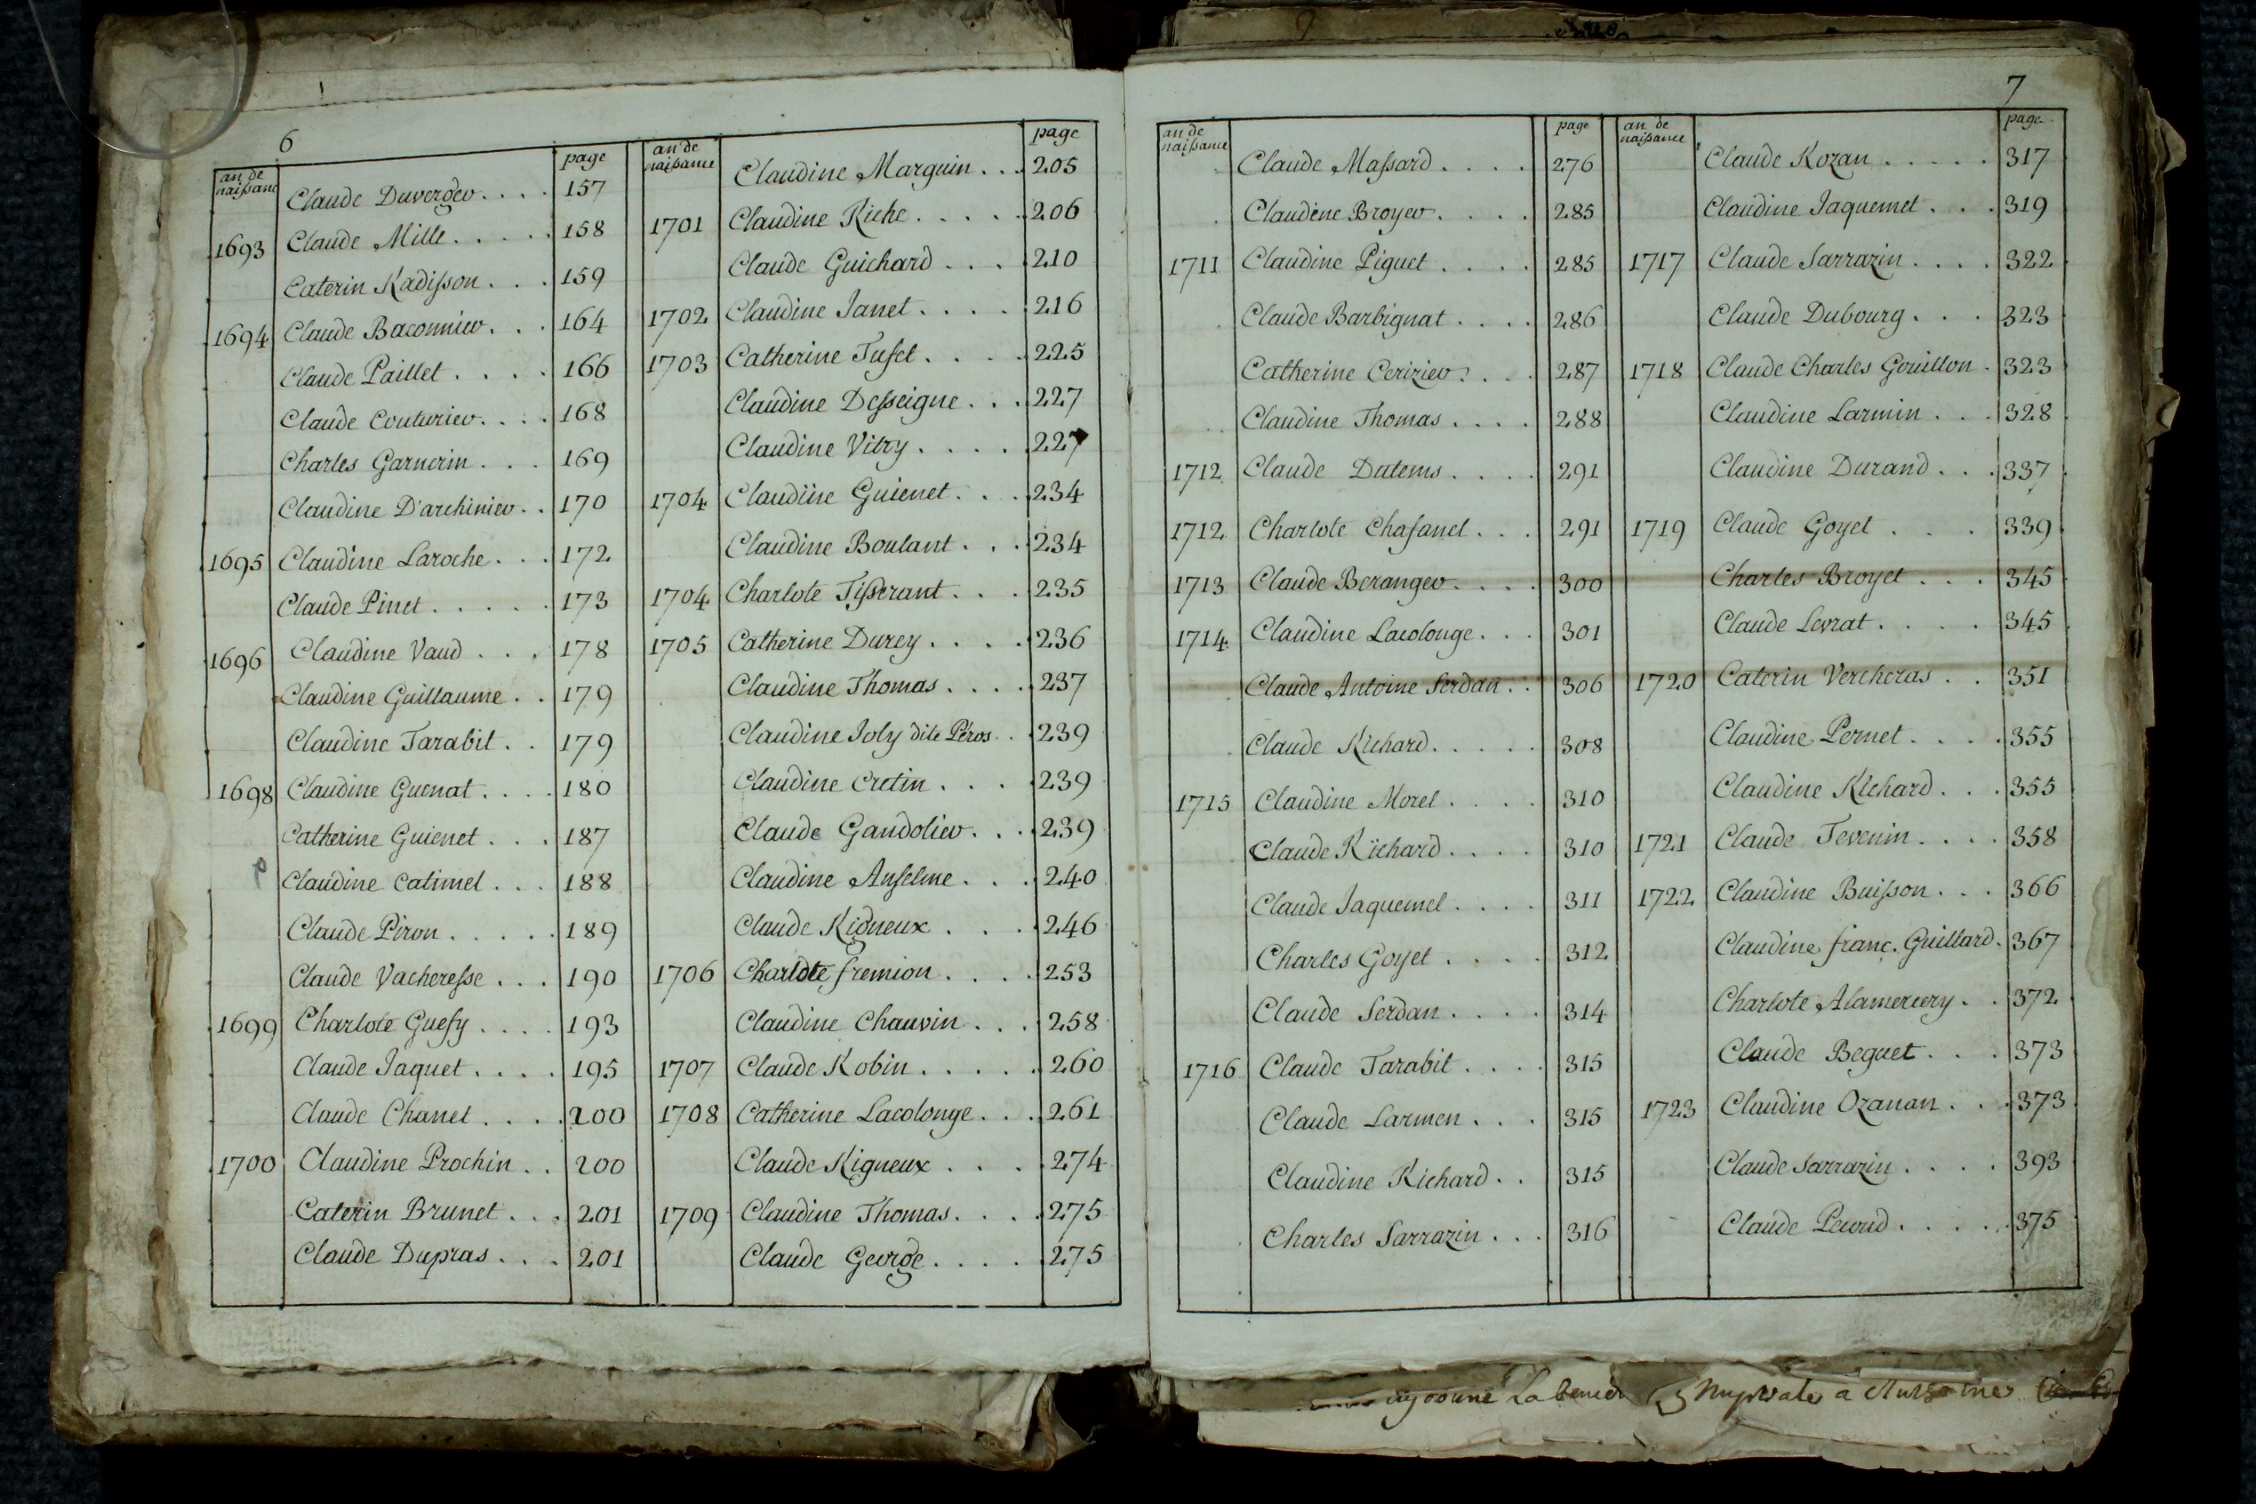 6
an de naissance page
Claude Duverger.... 157
1693 Claude Mille..... 158
Caterin Radisson... 159
1694 Claude Baconnier... 164
Claude Paillet.... 166
Claude Couturier.... 168
Charles Garnerin... 169
Claudine D'archinier.. 170
1695 Claudine Laroche... 172
Claude Pinet..... 173
1696 Claudine Vaud... 178
Claudine Guillaume.. 179
Claudine Tarabit.. 179
1698 Claudine Guenat.... 180
Catherine Guienet... 187
Claudine Catimel... 188
Claude Piron..... 189
Claude Vacheresse... 190
1699 Charlote Guesy.... 193
Claude Jaquet.... 195
Claude Chanel.... 200
1700 Claudine Prochin.. 200
Caterin Brunet... 201
Claude Dupras... 201
an de naissance page
Claudine Marguin... 205
1701 Claudine Riche..... 206
Claude Guichard... 210
1702 Claudine Janet.... 216
1703 Catherine Tuset.... 225
Claudine Desseigne... 227
Claudine Vitry.... 227
1704 Claudine Guienet... 234
Claudine Boulant... 234
1704 Charlote Tisserant... 235
1705 Catherine Durey.... 236
Claudine Thomas.... 237
Claudine Joly dite Péros.. 239
Claudine Cretin.... 239
Claude Gandolier... 239
Claudine Anselme... 240
Claude Rigneux.... 246
1706 Charlote fremion.... 253
Claudine Chauvin... 258
1707 Claude Robin..... 260
1708 Catherine Lacolonge... 261
Claude Rigneux.... 274
1709 Claudine Thomas.... 275
Claude George.... 275
7
an de naissance page
Claude Massard.... 276
Claudine Broyer.... 285
1711 Claudine Piguet.... 285
Claude Barbignat.... 286
Catherine Cerizier.... 287
Claudine Thomas.... 288
1712 Claude Dutems.... 291
1712 Charlote Chasanel... 291
1713 Claude Beranger.... 300
1714 Claudine Lacolonge... 301
Claude Antoine Serdan.. 306
Claude Richard..... 308
1715 Claudine Morel.... 310
Claude Richard.... 310
Claude Jaquemel.... 311
Charles Goyet.... 312
Claude Serdan.... 314
1716 Claude Tarabit.... 315
Claude Larmen... 315
Claudine Richard.. 315
Charles Sarrazin... 316
an de naissance page
Claude Rozan..... 317
Claudine Jaquemet... 319
1717 Claude Sarrazin.... 322
Claude Dubourg... 323
1718 Claude Charles Gouillon. 323
Claudine Larmin... 328
Claudine Durand... 337
1719 Claude Goyet... 339
Charles Broyet... 345
Claude Levrat.... 345
1720 Caterin Vercheras.. 351
Claudine Pernet.... 355
Claudine Richard... 355
1721 Claude Tevenin.... 358
1722 Claudine Buisson... 366
Claudine franç. Guillard. 367
Charlote Alamercery.. 372
Claude Beguet... 373
1723 Claudine Ozanan... 373
Claude Sarrazin.... 393
Claude Pecoud..... 375